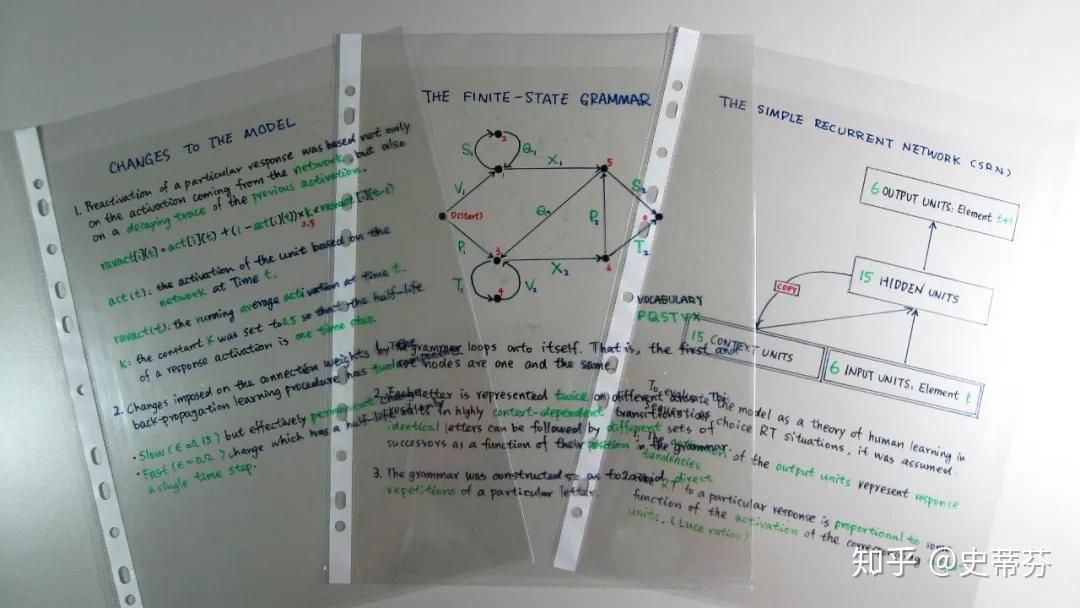 CHANGES TO THE MODEL
1. Preactivation of a particular response was based not only
on the activation coming from the network but also
on a decaying trace of the previous activation.
ravact[i](t) = act[i](t) + (1 - act[i](t)) × k × ravact[i](t-1)
0.5
act(t): the activation of the unit based on the
network at Time t.
ravact(t): the running average activation at time t.
K: the constant K was set to 0.5 so that the half-life
of a response activation is one time step.
2. Changes imposed on the connection weights by the
back-propagation learning procedure has two
• Slow (ε = 0.15) but effectively permanent
• Fast (ε = 0.2) change which has a half-life
a single time step.
THE FINITE-STATE GRAMMAR
2
S1
Q1
1
X1
5
S2
V1
0 (Start)
Q2
P2
0
P1
3
X2
6
T2
T1
4
V2
VOCABULARY
PQSTVX
1. The grammar loops onto itself. That is, the first and
last nodes are one and the same.
2. Each letter is represented twice on different
results in highly context-dependent transitions
identical letters can be followed by different sets of
successors as a function of their position in the grammar.
3. The grammar was constructed so as to avoid direct
repetitions of a particular letter.
THE SIMPLE RECURRENT NETWORK (SRN)
6 OUTPUT UNITS: Element t+1
15 HIDDEN UNITS
COPY
15 CONTEXT UNITS
6 INPUT UNITS, Element t
To evaluate the model as a theory of human learning in
choice RT situations, it was assumed:
1. The activation of the output units represent response
tendencies
2. RT to a particular response is proportional to some
function of the activation of the corresponding
units.. (Luce ratios)
知乎 @史蒂芬